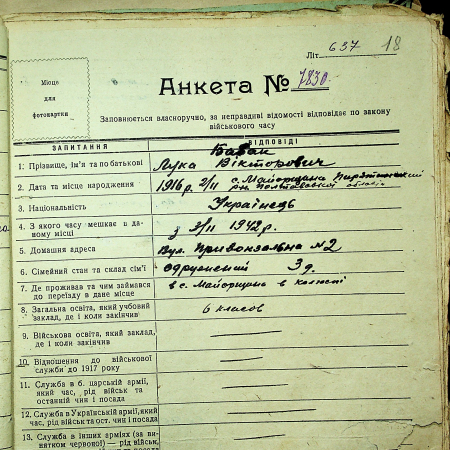 Літ. 637 18
Місце
для
фотокартки
Анкета № 7830.
Заповнюється власноручно, за неправдиві відомості відповідає по закону
військового часу
ЗАПИТАННЯ ВІДПОВІДІ
Бабак
1. Прізвище, ім'я та по батькові Лука Вікторович
2. Дата та місце народження 1916 р. 2/II с. Майорщина
рн Полтавської області
3. Національність Українець
4. З якого часу мешкає в даному місці з 2/II 1942 р.
5. Домашня адреса Вул. Привокзальна №2
6. Сімейний стан та склад сім'ї одружений 3 д.
7. Де проживав та чим займався
до переїзду в дане місце в с. Майорщина в колгоспі
8. Загальна освіта, який учбовий
заклад, де і коли закінчив 6 класов
9. Військова освіта, який заклад,
де і коли закінчив —
10. Відношення до військової
служби до 1917 року —
11. Служба в б. царській армії,
який час, рід військ та
останній чин і посада —
12. Служба в Українській армії, який
час, рід військ та ост. чин і посада —
13. Служба в інших арміях (за ви-
нятком червоної) — рід військ, —